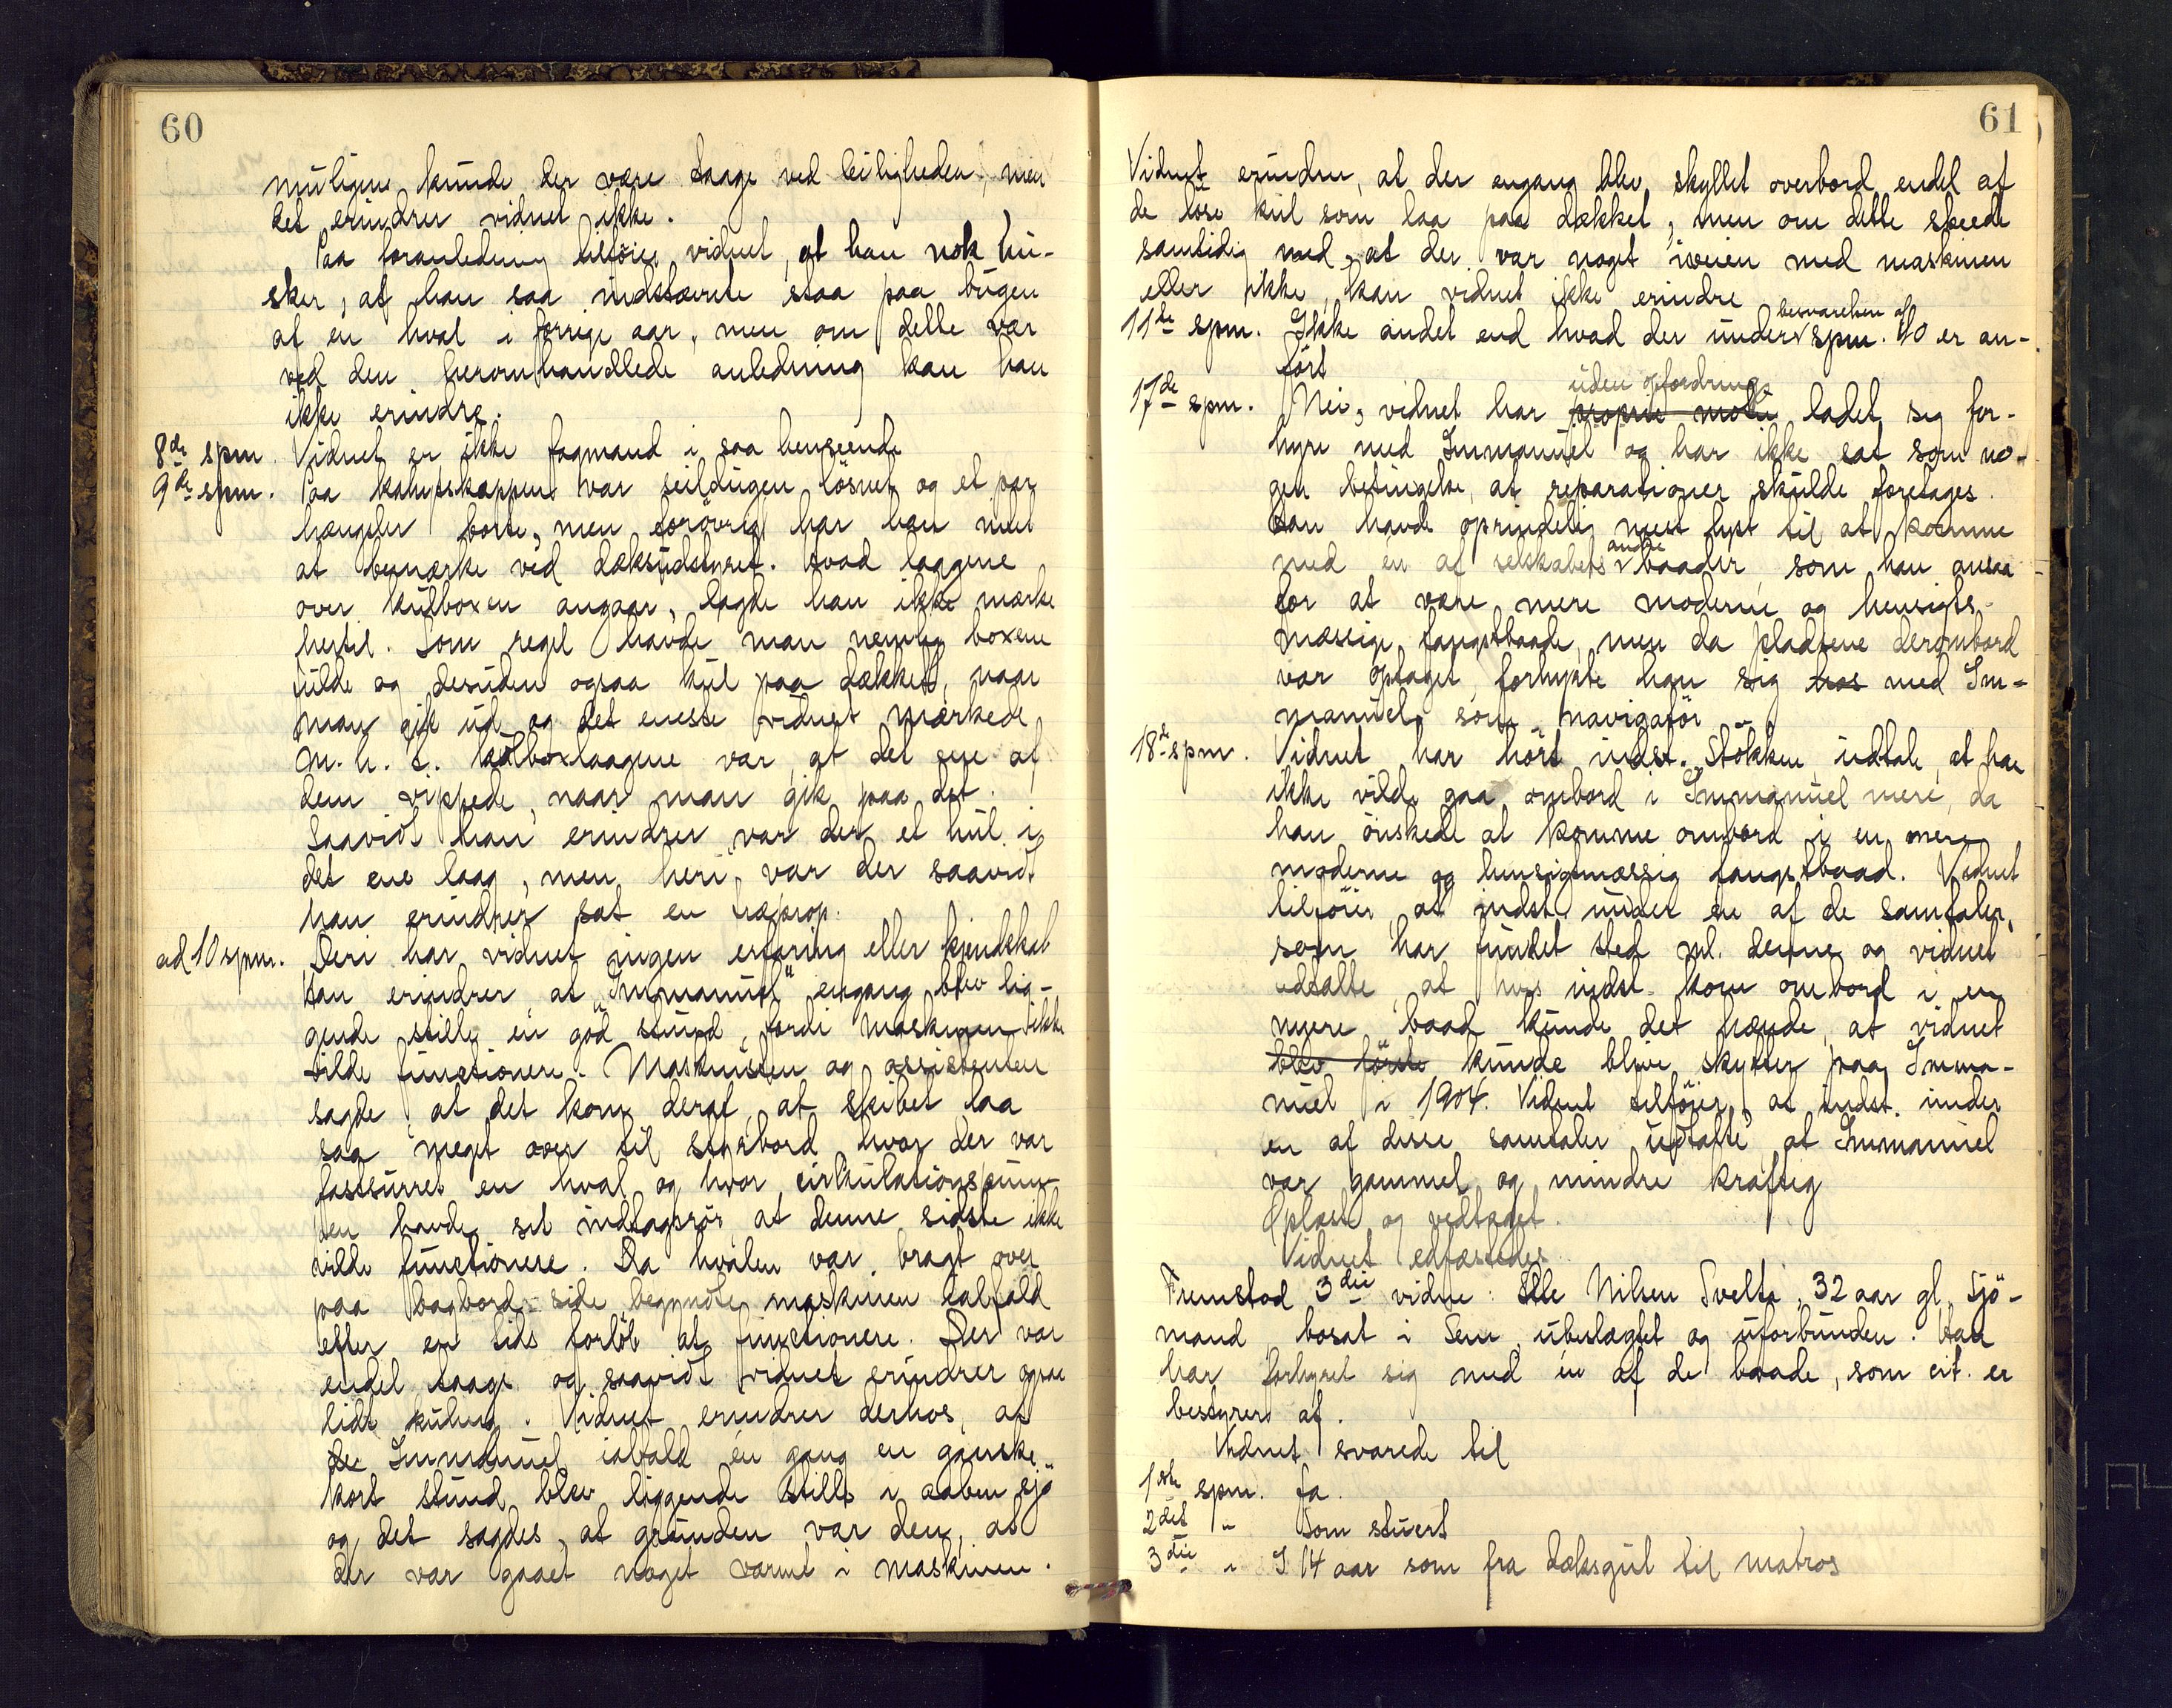 60
muligens kunde der være taage ved leiligheden, men
det erindrer vidnet ikke.
Paa foranledning tilføier vidnet, at han nok hu-
sker, at han saa indstævnte staa paa bugen
af en hval i forrige aar, men om dette var
ved den heromhandlede anledning kan han
ikke erindre.
8de spm. Vidnet er ikke fagmand i saa henseende
9de spm. Paa kahytskappen var seildugen løsnet og et par
hængsler borte, men forøvrig har han intet
at bemærke ved dæksudstyret. Hvad laagene
over kulboxen angaar, lagde han ikke mærke
hertil. Som regel havde man nemlig boxene
fulde og desuden ogsaa kul paa dækket, naar
man gik ud og det eneste vidnet mærkede
m. h. t. kulboxlaagene var, at det ene af
dem vippede, naar man gik paa det.
Saavidt han erindrer var der et hul i
det ene laag, men heri var der saavidt
han erindrer sat en træprop.
ad 10 spm. Deri har vidnet ingen erfaring eller kjendskab
Han erindrer at "Immanuel" engang blev lig-
gende stille en god stund, fordi maskinen ikke
vilde functionere. Maskinisten og assistenten
sagde, at det kom deraf, at skibet laa
saa meget over til styrbord hvor der var
fastsurret en hval og hvor cirkulationspum-
pen havde sit indtagsrør, at denne sidste ikke
vilde functionere. Da hvalen var bragt over
paa bagbord-side begyndte maskinen ialfald
efter en tids forløb at functionere. Der var
endel taage og saavidt vidnet erindrer ogsaa
lidt kuling. Vidnet erindrer derhos, at
de Immanuel ialfald én gang en ganske
kort stund blev liggende stille i aaben sjø
og det sagdes, at grunden var den, at
der var gaaet noget varmt i maskinen.
61
Vidnet erindrer, at der engang blev skyllet overbord endel af
de løse kul som laa paa dækket, men om dette skeede
samtidig med, at der var noget iveien med maskinen
eller ikke, kan vidnet ikke erindre
besvarelsen af
11te spm. Ikke andet end hvad der under spm. 10 er an-
ført
uden opfordring
17de spm. Nei, vidnet har proprio motu ladet sig for-
hyre med Immanuel og har ikke sat som no-
gen betingelse, at reparationer skulde foretages.
Han havde oprindelig mest lyst til at komme
andre
med en af selskabets baader, som han ansaa
for at være mere moderne og hensigts-
mæssige fangstbaade, men da pladsene derombord
var optaget, forhyrte han sig hos med Im-
manuel som navigatør
18de spm. Vidnet har hørt indst. Stokken udtale, at han
ikke vilde gaa ombord i Immanuel mere, da
han ønskede at komme ombord i en mere
moderne og hensigtmæssig fangstbaad. Vidnet
tilføier at indst. under en af de samtaler,
som har fundet sted ml. denne og vidnet
udtalte, at hvis indst. kom ombord i en
mere baad kunde det hænde, at vidnet
blev første kunde blive skytter paa Imma-
nuel i 1904. Vidnet tilføier, at indst. under
en af disse samtaler udtalte, at Immanuel
var gammel og mindre kraftig
Oplæst og vedtaget.
Vidnet edfæstedes.
Fremstod 3die vidne: Nilsen Tvelta, 32 aar gl, sjø-
mand, bosat i Sem, ubeslægtet og uforbunden. Han
har forhyret sig med én af de baade, som cit. er
bestyrer af.
Vidnet svarede til
1ste spm. Ja.
2det " Som stuert
3die " I 14 aar som fra dæksgut til matros